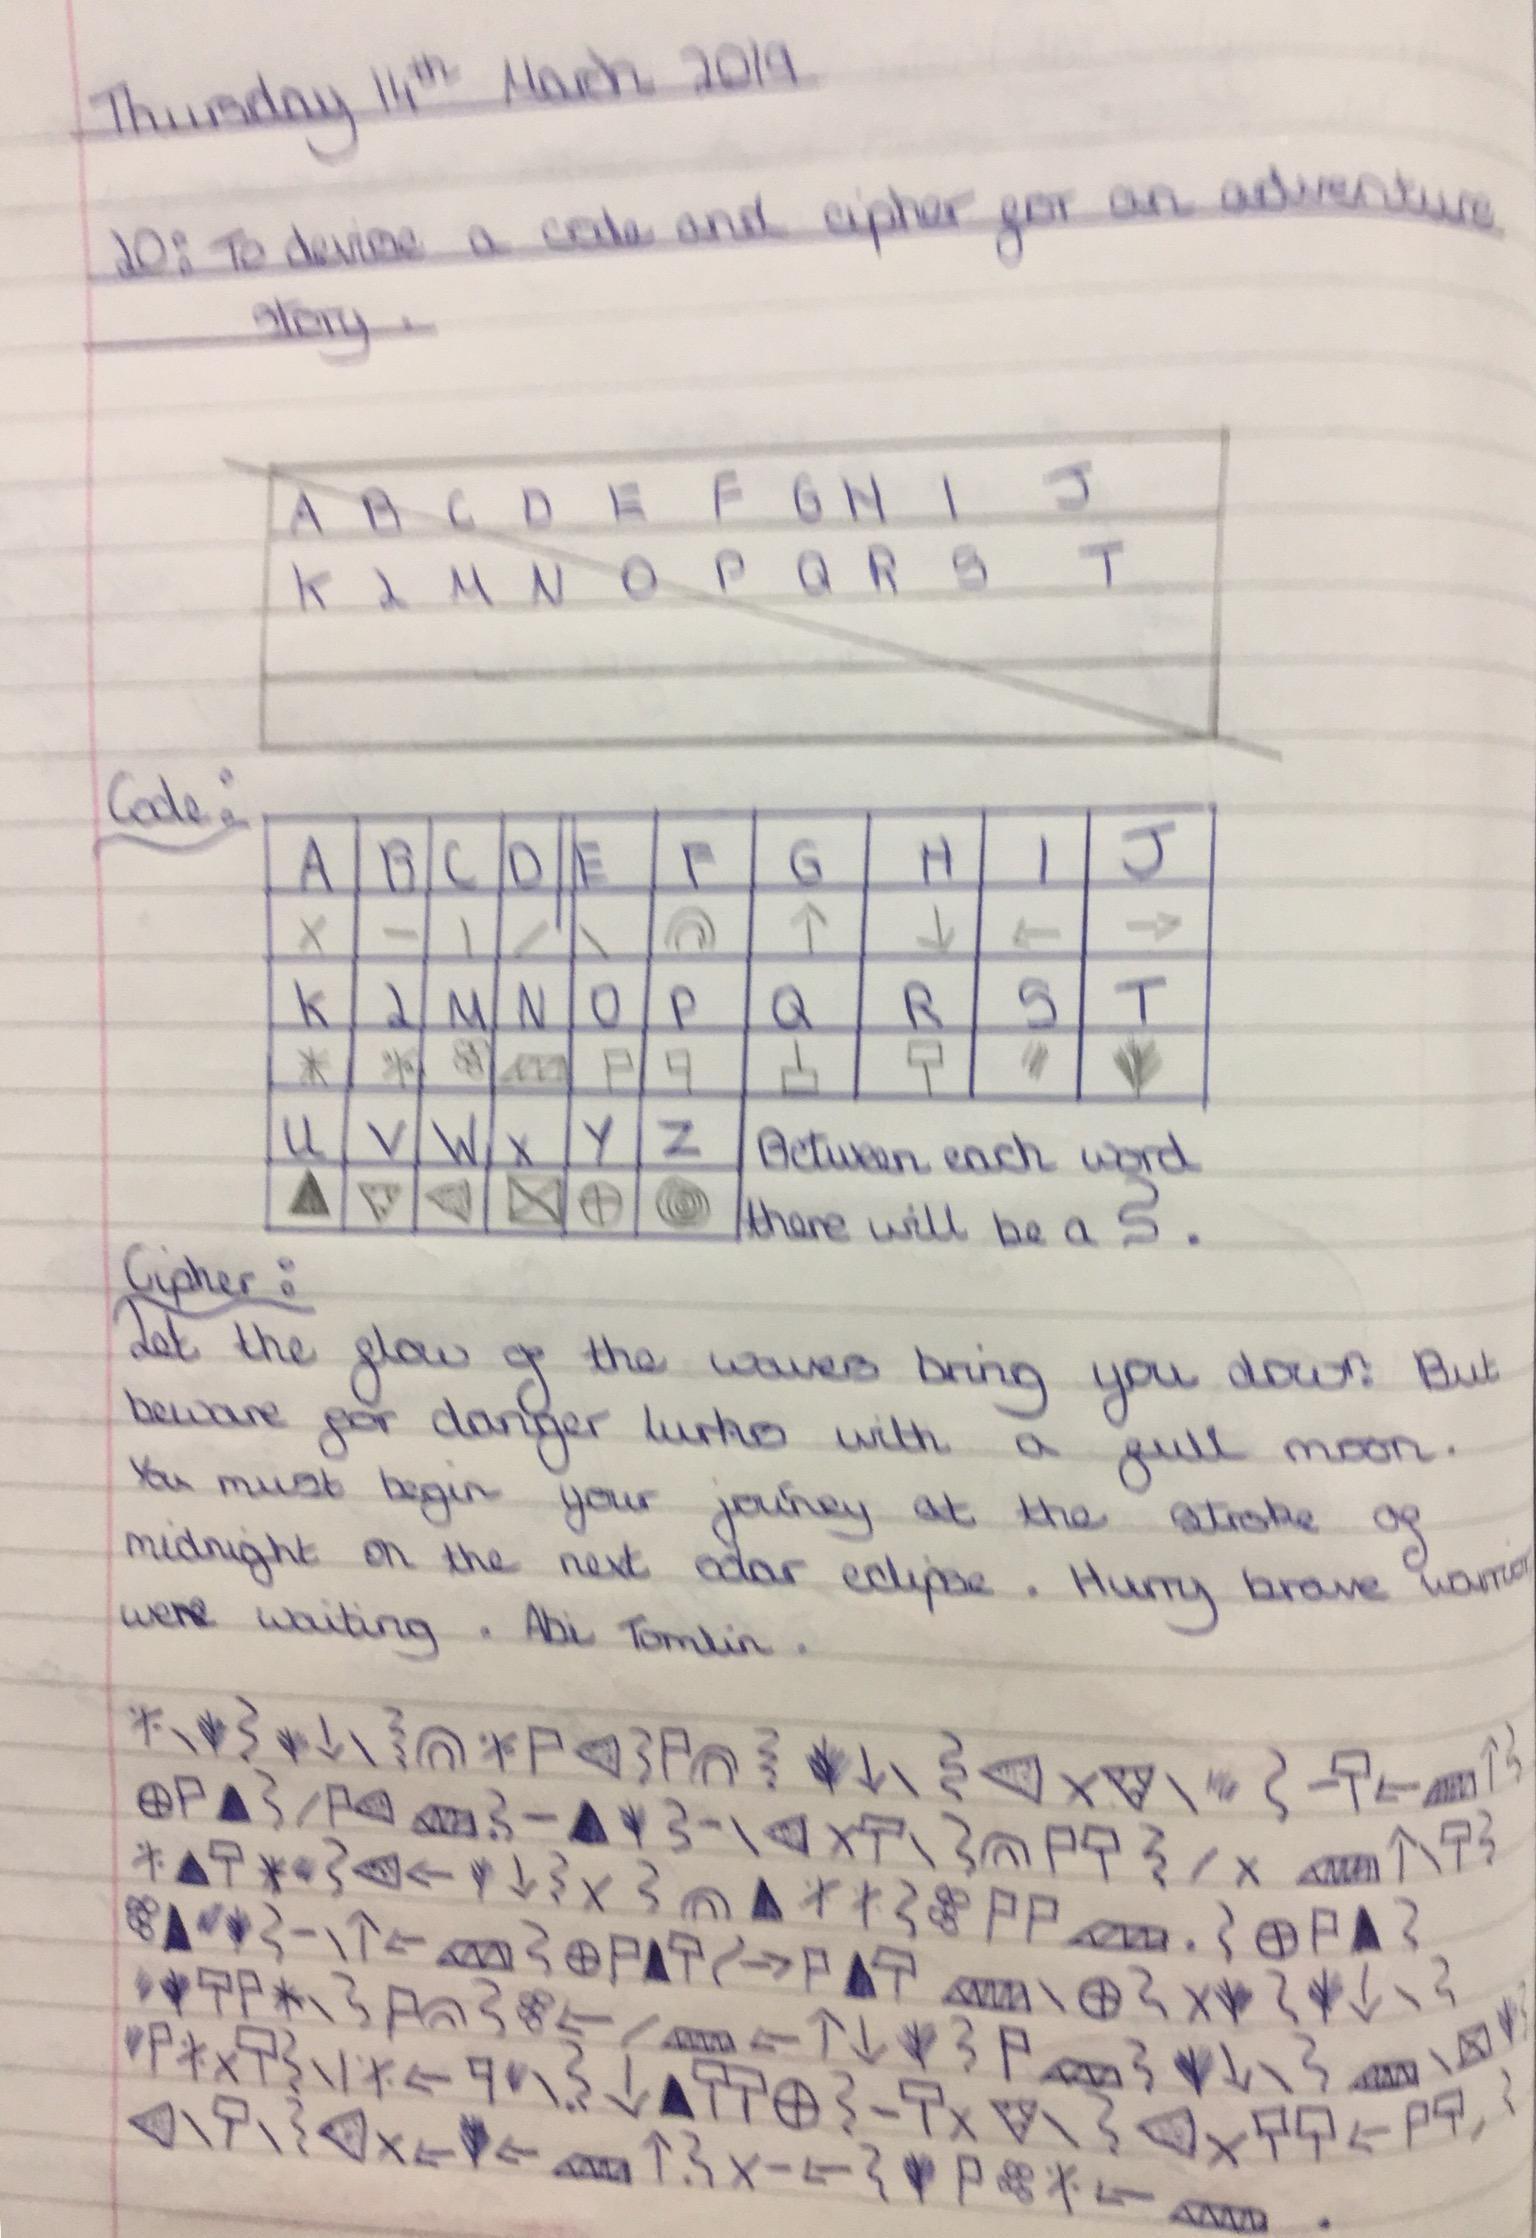 Thursday 14th March 2019
LO: To devise a code and cipher for an adventure
story.
A B C D E F G H I J
K L M N O P Q R S T
Code:
A B C D E F G H I J
K L M N O P Q R S T
U V W X Y Z Between each word
there will be a
Cipher:
Let the glow of the waves bring you down. But
beware for danger lurks with a full moon.
You must begin your journey at the stroke of
midnight on the next solar eclipse. Hurry brave warrior
were waiting. Abi Tomlin.